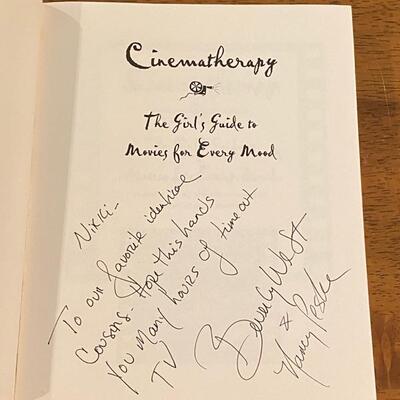 Cinematherapy
The Girl's Guide to
Movies for Every Mood
Nikki-
To our favorite identical
Cousins- Hope this hands
You many hours of time out
TV
Beverly West
& Nancy Peske